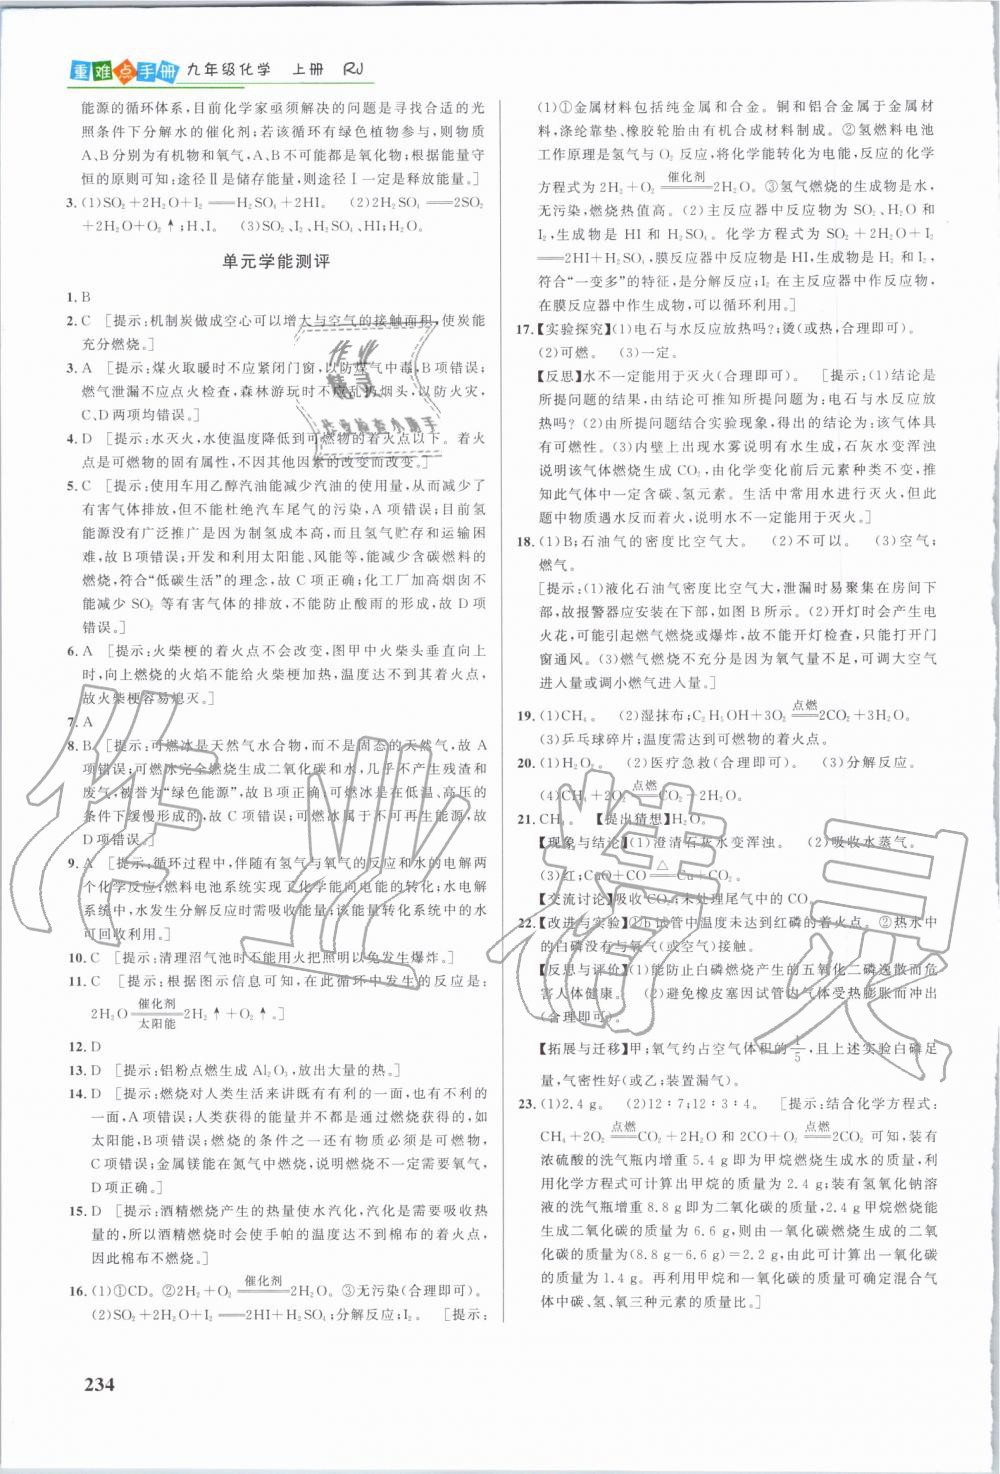 重难点手册 九年级化学 上册 RJ
能源的循环体系,目前化学家亟须解决的问题是寻找合适的光
照条件下分解水的催化剂;若该循环有绿色植物参与,则物质
A、B分别为有机物和氧气,A、B不可能都是氧化物;根据能量守
恒的原则可知:途径Ⅱ是储存能量,则途径Ⅰ一定是释放能量。]
3. (1)SO₂+2H₂O+I₂══H₂SO₄+2HI。 (2)2H₂SO₄══2SO₂
+2H₂O+O₂↑;H、I。 (3)SO₂、I₂、H₂SO₄、HI;H₂O。
单元学能测评
1. B
2. C [提示:机制炭做成空心可以增大与空气的接触面积,使炭能
充分燃烧。]
3. A [提示:煤火取暖时不应紧闭门窗,以防煤气中毒,B项错误;
燃气泄漏不应点火检查,森林游玩时不应乱扔烟头,以防火灾,
C、D两项均错误。]
4. D [提示:水灭火,水使温度降低到可燃物的着火点以下。着火
点是可燃物的固有属性,不因其他因素的改变而改变。]
5. C [提示:使用车用乙醇汽油能减少汽油的使用量,能减少了
有害气体排放,但不能杜绝汽车尾气的污染,A项错误;目前氢
能源没有广泛推广是因为制氢成本高,而且氢气贮存和运输困
难,故B项错误;开发和利用太阳能、风能等,能减少含碳燃料的
燃烧,符合“低碳生活”的理念,故C项正确;化工厂加高烟囱不
能减少SO₂等有害气体的排放,不能防止酸雨的形成,故D项
错误。]
6. A [提示:火柴梗的着火点不会改变,图甲中火柴头垂直向上
时,向上燃烧的火焰不能给火柴梗加热,温度达不到其着火点,
故火柴梗容易熄灭。]
7. A
8. B [提示:可燃冰是天然气水合物,而不是固态的天然气,故A
项错误;可燃冰完全燃烧生成二氧化碳和水,几乎不产生残渣和
废气,被誉为“绿色能源”,故B项正确;可燃冰是在低温、高压的
条件下缓慢形成的,故C项错误;可燃冰属于不可再生能源,故
D项错误。]
9. A [提示:循环过程中,伴随有氢气与氧气的反应和水的电解两
个化学反应;燃料电池系统实现了化学能向电能的转化;水电解
系统中,水发生分解反应时需吸收能量;该能量转化系统中的水
可回收利用。]
10. C [提示:清理沼气池时不能用火把照明以免发生爆炸。]
11. C [提示:根据图示信息可知,在此循环中发生的反应是:
2H₂O 催化剂══太阳能 2H₂↑+O₂↑。]
12. D
13. D [提示:铝粉点燃生成Al₂O₃,放出大量的热。]
14. D [提示:燃烧对人类生活来讲既有有利的一面,也有不利的
一面,A项错误;人类获得的能量并不都是通过燃烧获得的,如
太阳能,B项错误;燃烧的条件之一还有物质必须是可燃物,
C项错误;金属镁能在氮气中燃烧,说明燃烧不一定需要氧气,
D项正确。]
15. D [提示:酒精燃烧产生的热量使水汽化,汽化是需要吸收热
量的,所以酒精燃烧时会使手帕的温度达不到棉布的着火点,
因此棉布不燃烧。]
16. (1)①CD。②2H₂+O₂ 催化剂══ 2H₂O。③无污染(合理即可)。
(2)SO₂+2H₂O+I₂══2HI+H₂SO₄;分解反应;I₂。 [提示:
(1)①金属材料包括纯金属和合金。铜和铝合金属于金属材
料,涤纶靠垫、橡胶轮胎由有机合成材料制成。②氢燃料电池
工作原理是氢气与O₂反应,将化学能转化为电能,反应的化学
方程式为2H₂+O₂ 催化剂══ 2H₂O。③氢气燃烧的生成物是水,
无污染,燃烧热值高。(2)主反应器中反应物为SO₂、H₂O和
I₂,生成物是HI和H₂SO₄。化学方程式为SO₂+2H₂O+I₂
══2HI+H₂SO₄,膜反应器中反应物是HI,生成物是H₂和I₂,
符合“一变多”的特征,是分解反应;I₂在主反应器中作反应物,
在膜反应器中作生成物,可以循环利用。]
17. 【实验探究】(1)电石与水反应放热吗?;烫(或热,合理即可)。
(2)可燃。 (3)一定。
【反思】水不一定能用于灭火(合理即可)。 [提示:(1)结论是
所提问题的结果,由结论可推知所提问题为:电石与水反应能
放热吗?(2)由所提问题结合实验现象,得出的结论为:该气体
具有可燃性。(3)内壁上出现水雾说明有水生成,石灰水变浑浊
说明该气体燃烧生成CO₂,由化学变化前后元素种类不变,推
知此气体中一定含碳、氢元素。生活中常用水进行灭火,但此
题中物质遇水反而着火,说明水不一定能用于灭火。]
18. (1)B;石油气的密度比空气大。 (2)不可以。 (3)空气;
燃气。
[提示:(1)液化石油气密度比空气大,泄漏时易聚集在房间下
部,故报警器应安装在下部,如图B所示。(2)开灯时会产生电
火花,可能引起燃气燃烧或爆炸,故不能开灯检查,只能打开门
窗通风。(3)燃气燃烧不充分是因为氧气量不足,可调大空气
进入量或调小燃气进入量。]
19. (1)CH₄。 (2)湿抹布;C₂H₅OH+3O₂ 点燃══ 2CO₂+3H₂O。
(3)乒乓球碎片;温度需达到可燃物的着火点。
20. (1)H₂O₂。 (2)医疗急救(合理即可)。 (3)分解反应。
(4)CH₄+2O₂ 点燃══ CO₂+2H₂O。
21. CH₄。 【提出猜想】H₂O。
【现象与结论】(1)澄清石灰水变浑浊。 (2)吸收水蒸气。
(3)红;CuO+CO △══ Cu+CO₂。
【交流讨论】吸收CO₂;未处理尾气中的CO。
22. 【改进与实验】①b试管中温度未达到红磷的着火点。②热水中
的白磷没有与氧气(或空气)接触。
【反思与评价】(1)能防止白磷燃烧产生的五氧化二磷逸散而危
害人体健康。 (2)避免橡皮塞因试管内气体受热膨胀而冲出
(合理即可)。
【拓展与迁移】甲;氧气约占空气体积的1/5,且上述实验白磷足
量,气密性好(或乙;装置漏气)。
23. (1)2.4 g。 (2)12∶7;12∶3∶4。 [提示:结合化学方程式:
CH₄+2O₂ 点燃══ CO₂+2H₂O和2CO+O₂ 点燃══ 2CO₂可知,装有
浓硫酸的洗气瓶内增重5.4 g即为甲烷燃烧生成水的质量,利
用化学方程式可计算出甲烷的质量为2.4 g;装有氢氧化钠溶
液的洗气瓶增重8.8 g即为二氧化碳的质量,2.4 g甲烷燃烧能
生成二氧化碳的质量为6.6 g,则由一氧化碳燃烧生成的二氧
化碳的质量为(8.8 g-6.6 g)=2.2 g,由此可计算出一氧化碳
的质量为1.4 g。再利用甲烷和一氧化碳的质量可确定混合气
体中碳、氢、氧三种元素的质量比。]
234
作业精灵
作业
精灵
作业检查小助手